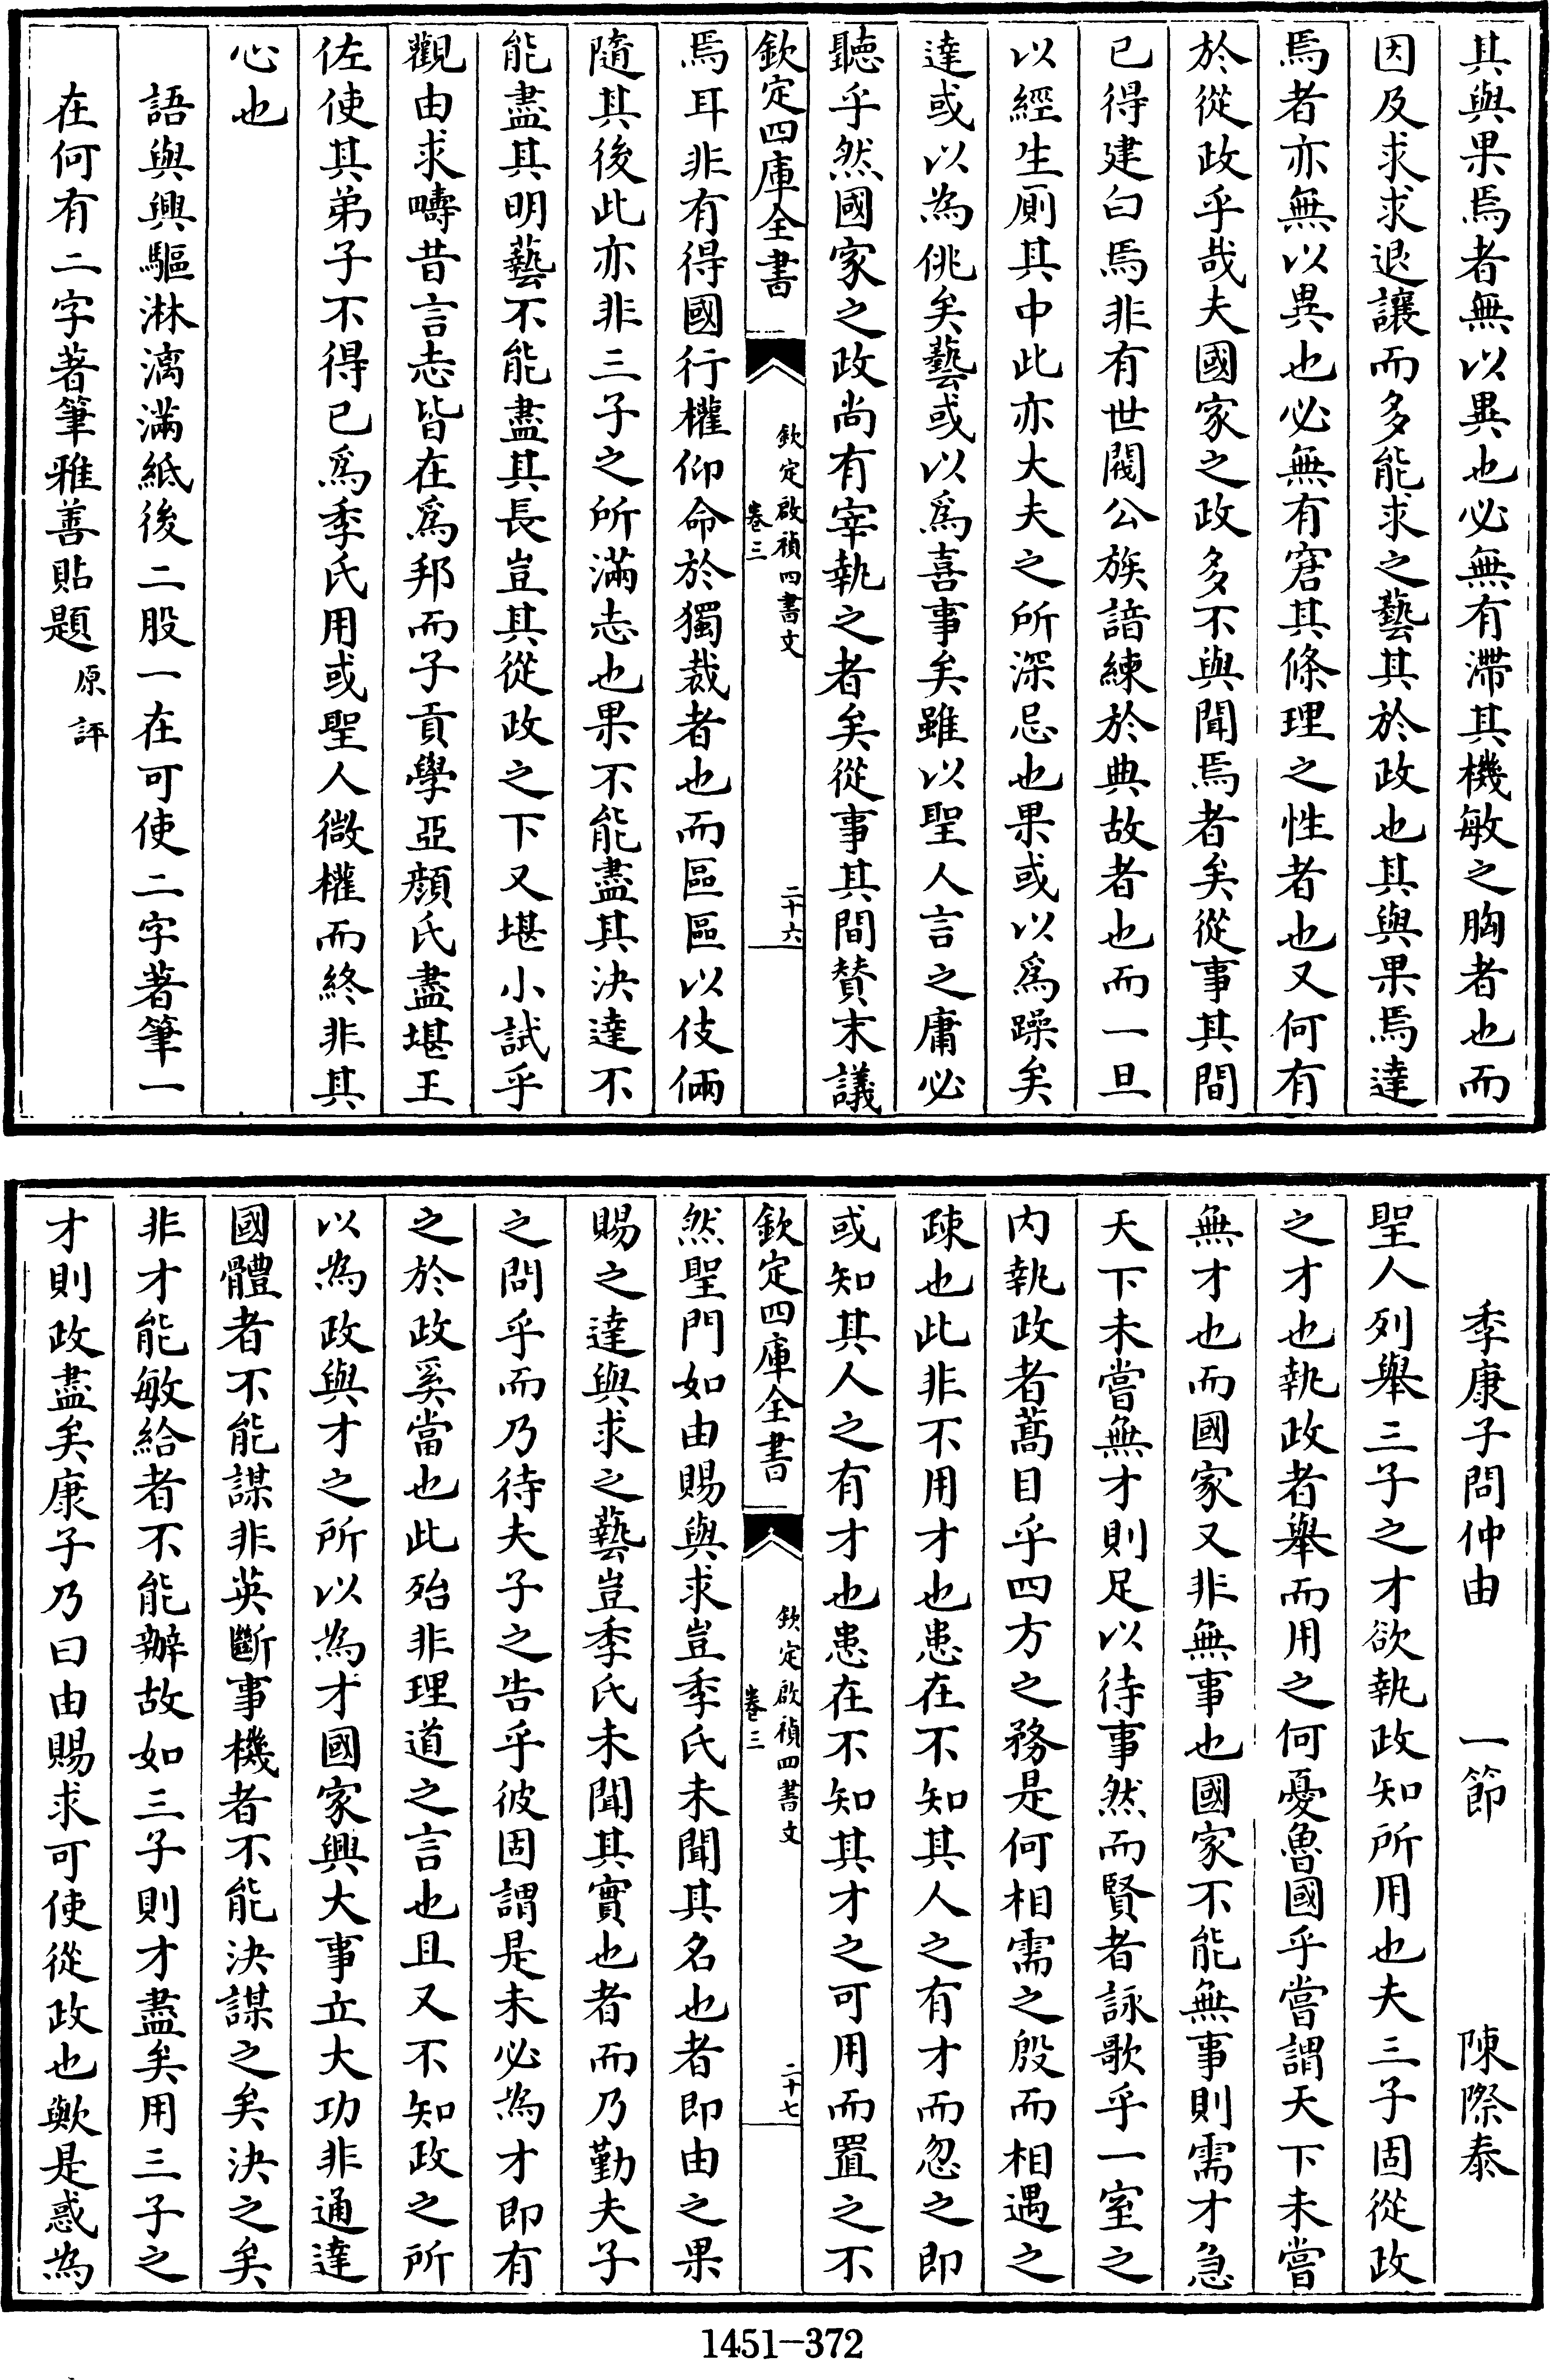 其與果焉者無以異也必無有滯其機敏之胸者也而
因及求求退讓而多能求之藝其於政也其與果焉達
焉者亦無以異也必無有窘其條理之性者也又何有
於從政乎哉夫國家之政多不與聞焉者矣從事其間
已得建白焉非有世閥公族諳練於典故者也而一旦
以經生厠其中此亦大夫之所深忌也果或以為躁矣
達或以為佻矣藝或以為喜事矣雖以聖人言之庸必
聽乎然國家之政尚有宰執之者矣從事其間賛末議
欽定四庫全書
欽定啟禎四書文
卷三
二十六
焉耳非有得國行權仰命於獨裁者也而區區以伎倆
隨其後此亦非三子之所滿志也果不能盡其決達不
能盡其明藝不能盡其長豈其從政之下又堪小試乎
觀由求疇昔言志皆在為邦而子貢學亞顔氏盡堪王
佐使其弟子不得已為季氏用或聖人微權而終非其
心也
語與興驅淋漓滿紙後二股一在可使二字著筆一
在何有二字著筆雅善貼題原評
季康子問仲由 一節 陳際泰
聖人列舉三子之才欲執政知所用也夫三子固從政
之才也執政者舉而用之何憂魯國乎嘗謂天下未嘗
無才也而國家又非無事也國家不能無事則需才急
天下未嘗無才則足以待事然而賢者詠歌乎一室之
内執政者蒿目乎四方之務是何相需之殷而相遇之
疎也此非不用才也患在不知其人之有才而忽之即
或知其人之有才也患在不知其才之可用而置之不
欽定四庫全書
欽定啟禎四書文
卷三
二十七
然聖門如由賜與求豈季氏未聞其名也者即由之果
賜之達與求之藝豈季氏未聞其實也者而乃勤夫子
之問乎而乃待夫子之告乎彼固謂是未必為才即有
之於政奚當也此殆非理道之言也且又不知政之所
以為政與才之所以為才國家興大事立大功非通達
國體者不能謀非英斷事機者不能決謀之矣決之矣
非才能敏給者不能辦故如三子則才盡矣用三子之
才則政盡矣康子乃曰由賜求可使從政也歟是惑為
1451-372